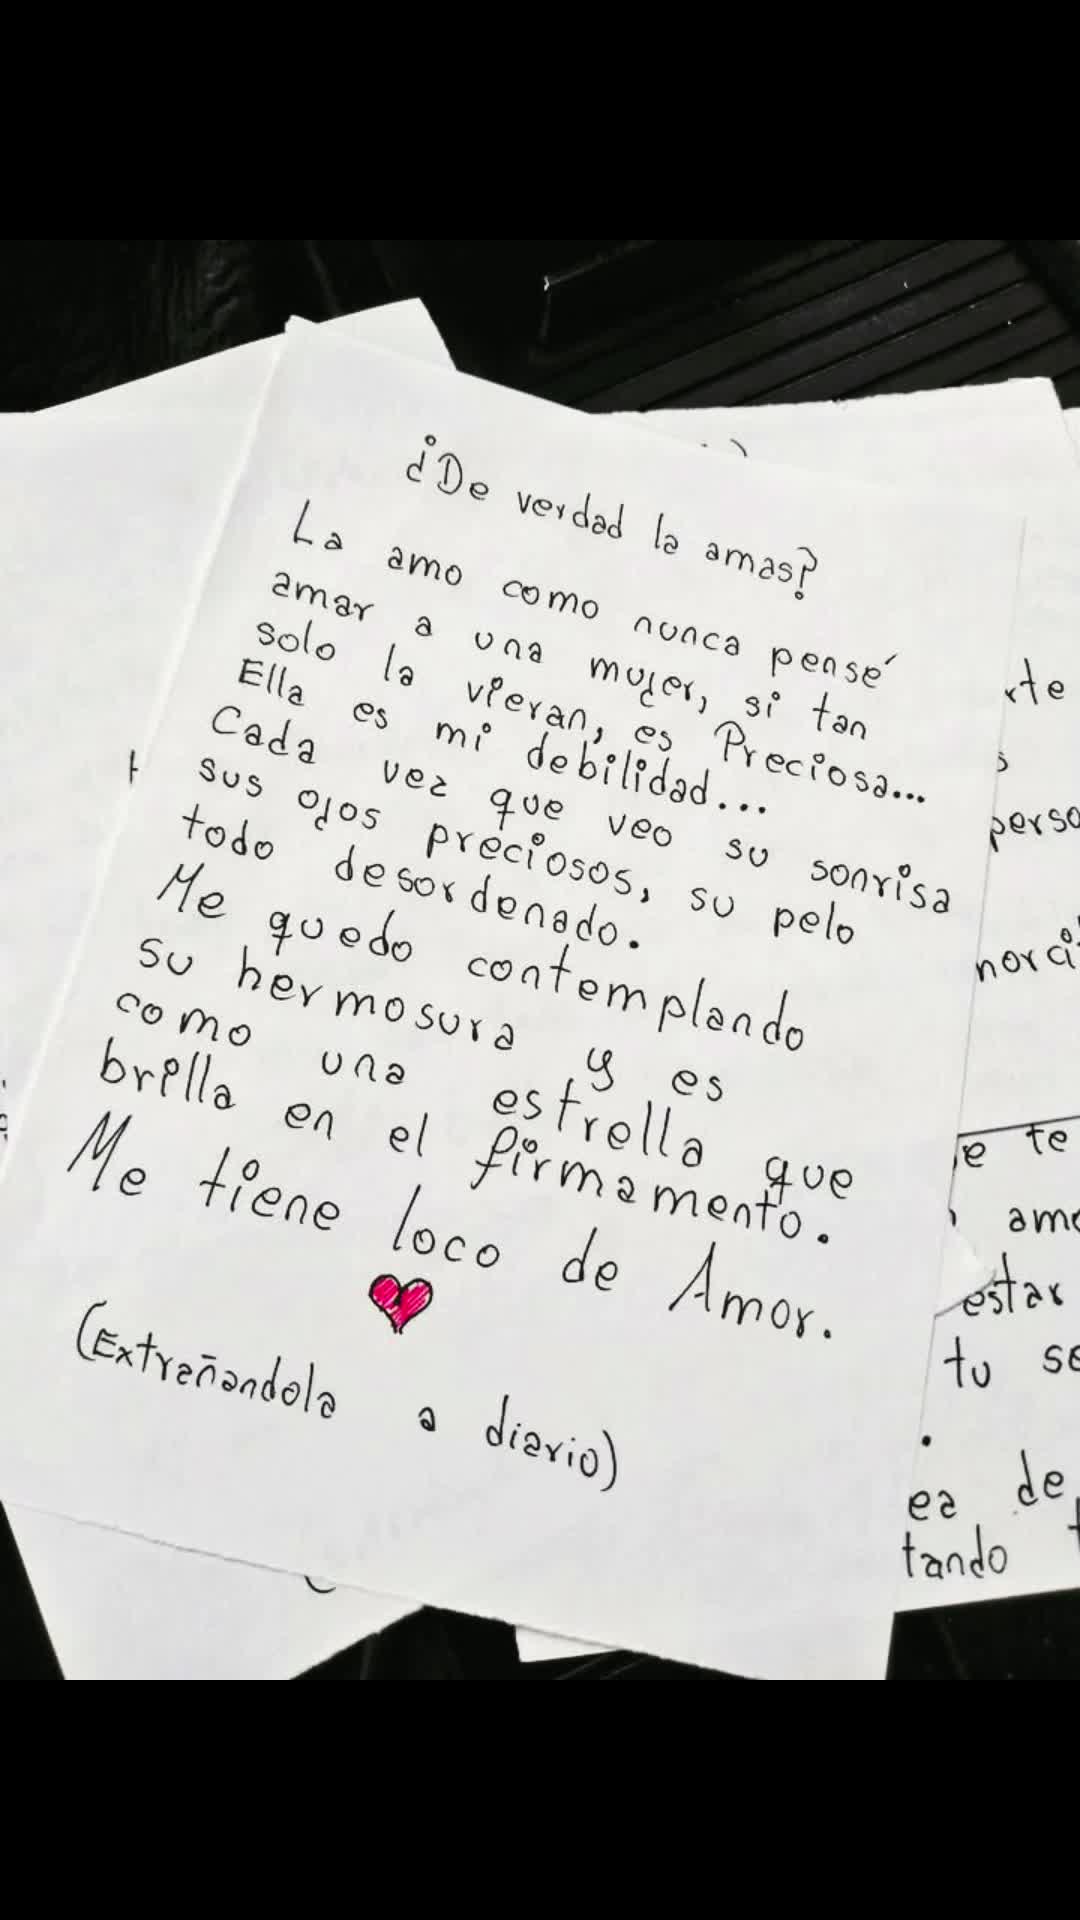 ¿De verdad la amas?
La amo como nunca pensé
amar a una mujer, si tan
solo la vieran, es Preciosa...
Ella es mi debilidad...
Cada vez que veo su sonrisa
sus ojos preciosos, su pelo
todo desordenado.
Me quedo contemplando
su hermosura y es
como una estrella que
brilla en el firmamento.
Me tiene loco de Amor.
(Extrañandola a diario)
rte
s
perso
norci
e te
amo
estar
tu se
.
ea de
tando t